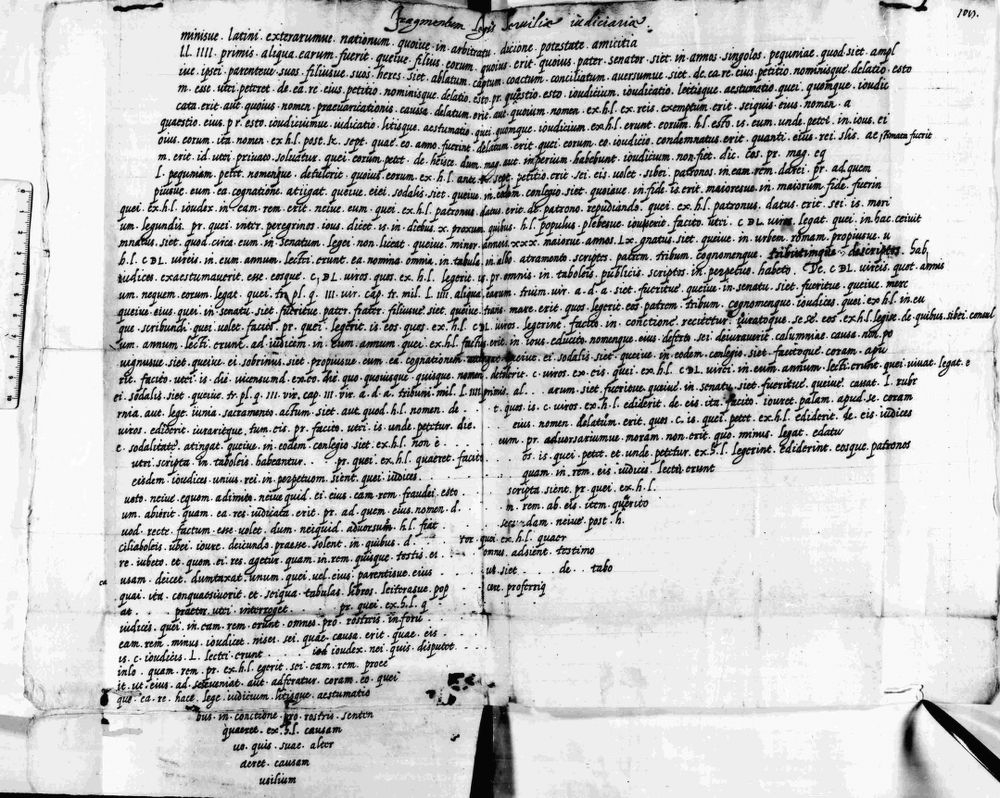 Fragmentum legis Seruiliæ iudiciariæ.
minisue . latini . exterarumue . nationum . quoiue . in . arbitratu . dicione . potestate . amicitia
ll . IIII . primis . aliqua . earum . fuerit . queiue . filius . eorum . quoius . erit . quoius . pater . senator . siet . in . annos . singolos . pequniae . quod . siet . ampl
iue . ipsei . parenteue . suos . filiusue . suos . heres . siet . ablatum . captum . coactum . conciliatum . auersumue . siet . de . ea . re . eius . petitio . nominisque . delatio . esto
m . esse . uti . petret . de . ea . re . eius . petitio . nominisque . delatio . esto . pr . quaestio . esto . ioudicium . ioudicatio . leitisque . aestumatio . quei . quomque . ioudic
cata . erit . aut . quoius . nomen . praeuaricationis . causa . delatum . erit . aut . quoium . nomen . ex . h . l . ex . reis . exemptum . erit . seiquis . eius . nomen . a
quaestio . eius . pr . esto . ioudiciumue . iudicatio . litisque . aestumatio . quei . quomque . ioudicium . ex . h . l . erunt . eorum . h . l . esto . is . eum . unde . petet . in . ious . ei
oius . eorum . ita . nomen . ex . h . l . post . k . sept . quae . eo . anno . fuerint . delatum . erit . quei . eorum . eo . ioudicio . condemnatus . erit . quanti . eius . rei . slis . ae stumata fuerit
m . erit . id . utei . priuato . soluatur . quei . eorum . petet . de . heisce . dum . mag . aut . inperium . habebunt . ioudicium . non . fiet . dic . cos . pr . mag . eq
l . pequniam . petet . nomenque . detulerit . quoius . eorum . ex . h . l . ante . k . sept . petitio . erit . sei . eis . uolet . sibei . patronos . in . eam . rem . darei . pr . ad . quem
piusue . eum . ea . cognatione . atiigat . queiue . eiei . sodalis . siet . queiue . in . eodem . conlegio . siet . quoiaue . in . fide . is . erit . maioresue . in . maiorum . fide . fuerin
quei . ex . h . l . ioudex . in . eam . rem . erit . neiue . eum . quei . ex . h . l . patronus . datus . erit . de . patrono . repudiando . quei . ex . h . l . patronus . datus . erit . sei . is . mori
um . legundis . pr . quei . inter . peregrinos . ious . dicet . is . in . diebus . x . proxum . quibus . h . l . populus . plebesue . iouserit . facito . utei . CDL . uiros . legat . quei . in . hac . ceiuit
mnatus . siet . quod . circa . eum . in . senatum . legei . non . liceat . queiue . minor . anneis . xxx . maiorue . annos . lx . gnatus . siet . queiue . in . urbem . romam . propiusue . u
h . l . CDL . uireis . in . eum . annum . lectei . erunt . ea . nomina . omnia . in . tabula . in . albo . atramento . scriptos . patrem . tribum . cognomenque . tributimque . descriptos . hab
iudices . exaestumauerit . esse . eosque . C, DL . uiros . quos . ex . h . l . legerit . is . pr . omnis . in . taboleis . publicis . scriptos . in . perpetuo . habeto . De . CDL . uireis . quot . annis
um . nequem . eorum . legat . quei . tr . pl . q . III . uir . cap . tr . mil . L . IIII . aliqua . earum . trium . uir . a . d . a . siet . fueritue . queiue . in . senatu . siet . fueritue . queiue . merc
queiue . eius . quei . in . senatu . siet . fueritue . pater . frater . filiusue . siet . queiue . trans . mare . erit . quos . legerit . eos . patrem . tribum . cognomenque . ioudices . quei . ex . h . l . in . eu
que . scribundi . quei . uolet . facito . pr . quei . legerit . is . eos . quos . ex . h . l . CDL . uiros . legerint . facito . in . conctione . recitetur . iuratoque . sese . eos . ex . h . l . legise . de . quibus . sibei . consul
um . annum . lectei . erunt . ad . iudicem . in . eum . annum . quei . ex . h . l . factus . erit . in . ious . educito . nomenque . eius . deferto . sei . deiurauerit . calumniae . causa . non . po
uignusue . siet . queiue . ei . sobrinus . siet . propiusue . eum . ea . cognationem . queiue . ei . sodalis . siet . queiue . in . eodem . conlegio . siet . facitoque . coram . apu
rit . facito . utei . is . die . uicensumo . ex . eo . die . quo . quouisque . quisque . nomen . detulerit . C . uiros . ex . eis . quei . ex . h . l . CDL . uirei . in . eum . annum . lectei . erunt . quei . uiuat . legat . e
ei . sodalis . siet . queiue . tr . pl . q . III . uir . cap . III . uir . a . d . a . tribuni . mil . L . IIII . primis . al . . . arum . siet . fueritue . queiue . in . senatu . siet . fueritue . queiue . cassat . l . rubr
rnia . aut . lege . iunia . sacramento . actum . siet . aut . quod . h . l . nomen . de . . . t . quos . is . C . uiros . ex . h . l . ediderit . de . eis . ita . facito . iouret . palam . apud . se . coram
uiros . ediderit . iurarique . tum . eis . pr . facito . utei . is . unde . petetur . die . eius . nomen . delatum . erit . quos . C . is . quei . petet . ex . h . l . ediderit . de . eis . iudices
e . sodalitate . atingat . queiue . in . eodem . conlegio . siet . ex . h . l . non . e . . . eum . pr . aduorsariumue . moram . non . erit . quo . minus . legat . edatu
utei . scripta . in . taboleis . habeantur . . . pr . quei . ex . h . l . quaeret . facito . . . os . is . quei . petet . et . unde . petetur . ex . h . l . legerint . ediderint . eosque . patronos
eisdem . ioudices . unius . rei . in . perpetuom . sient . quei . iudices . . . quam . in . rem . eis . iudices . lectei . erunt
uato . neiue . equom . adimito . neiue . quid . ei . eius . eam . rem . fraudei . esto . . . scripta . sient . pr . quei . ex . h . l .
um . abierit . quam . ea . res . iudicata . erit . pr . ad . quem . eius . nomen . d . . . . n . rem . ab . eis . item . quaerito
uod . recte . factum . esse . uolet . dum . neiquid . aduorsum . h . l . fiat . . . secundam . neiue . post . h .
ciliaboleis . ubei . ioure . deicundo . praesse . solent . in . quibus . d . . . tor . quei . ex . h . l . quaer
re . iubeto . et . quom . ei . res . agetur . quam . in . rem . quisque . testis . es . . . omnis . adsient . testimo
usam . deicet . dumtaxat . unum . quei . uel . eius . parentisue . eius . . . ue . siet . . . de . . . tabo
quai . ita . conquaesiuerit . et . seiqua . tabulas . libros . leiterasue . pop . . . ere . proferriq
at . . . praetor . utei . interroget . . . pr . quei . ex . h . l . q
iudices . quei . in . eam . rem . erunt . omnes . pro . rostreis . in foru
eam . rem . minus . ioudicet . nisei . sei . quae . causa . erit . quae . eis
is . C . ioudicis . L . lectei . erunt . . . iod ioudex . nei . quis . disputet . . .
inlo . quam . rem . pr . ex . h . l . egerit . sei . eam . rem . proce
it . ut . eius . ad . sesueniat . aut . adferatur . coram . eo . quei
quo . ea . re . hace . lege . iudicium . litisque . aestumatio
bus . in . conctione . pro . rostris . senten
quaeret . ex . h . l . causam
uo . quis . suae . alter
deret . causam
usilium